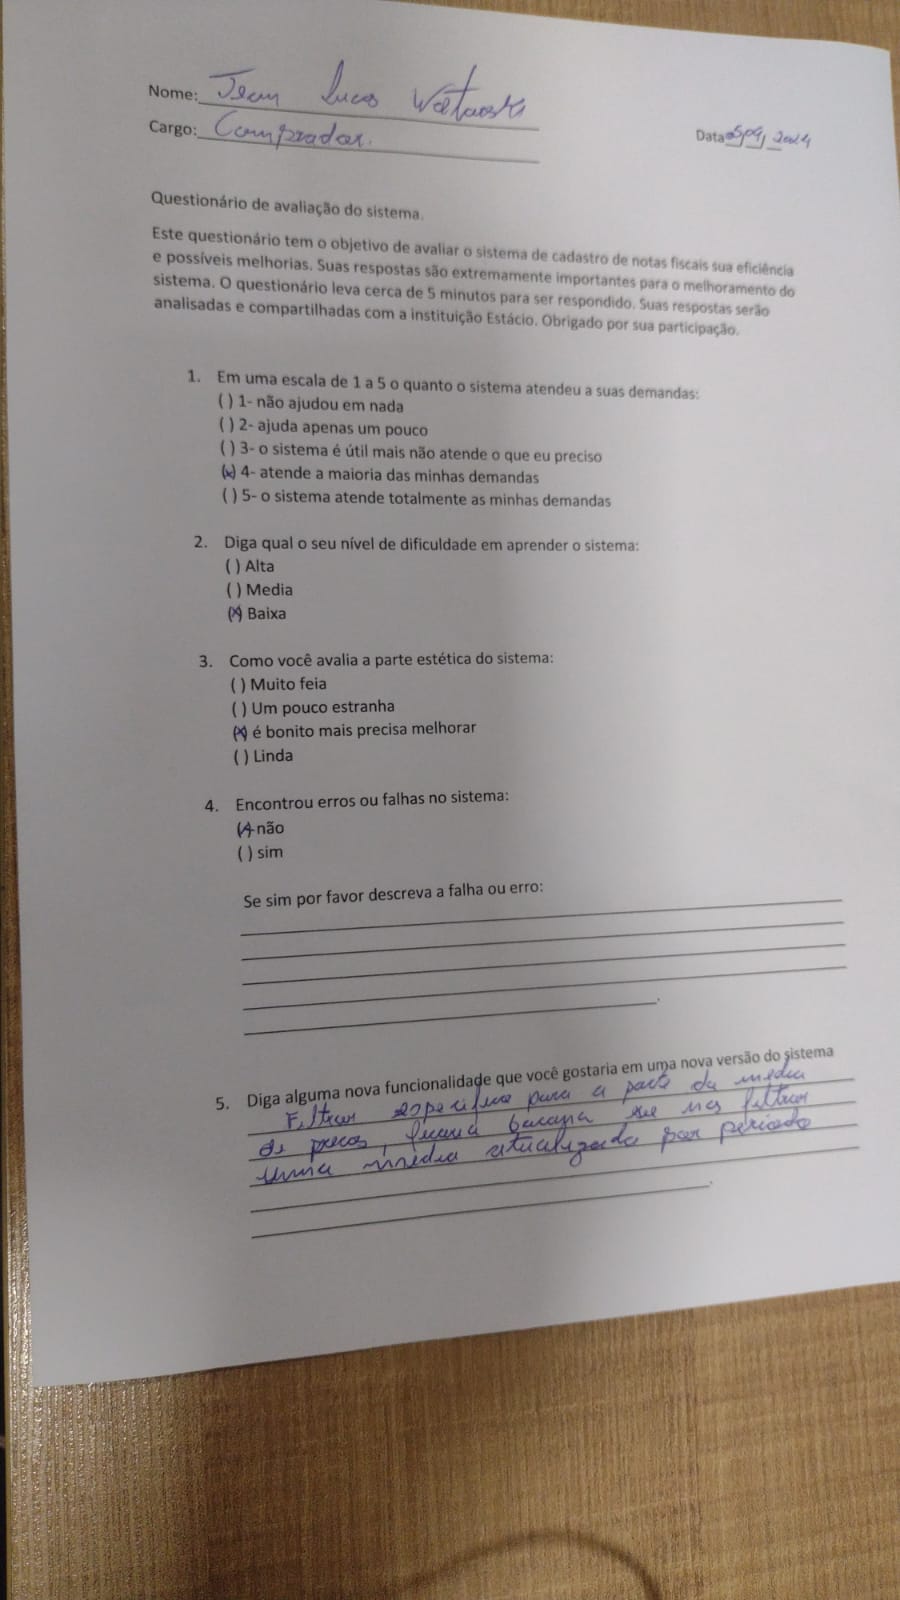 Nome: Jean Lucas
Cargo: Comprador.
Data 2024
Questionário de avaliação do sistema.
Este questionário tem o objetivo de avaliar o sistema de cadastro de notas fiscais sua eficiência
e possíveis melhorias. Suas respostas são extremamente importantes para o melhoramento do
sistema. O questionário leva cerca de 5 minutos para ser respondido. Suas respostas serão
analisadas e compartilhadas com a instituição Estácio. Obrigado por sua participação.
1. Em uma escala de 1 a 5 o quanto o sistema atendeu a suas demandas:
( ) 1- não ajudou em nada
( ) 2- ajuda apenas um pouco
( ) 3- o sistema é útil mais não atende o que eu preciso
(x) 4- atende a maioria das minhas demandas
( ) 5- o sistema atende totalmente as minhas demandas
2. Diga qual o seu nível de dificuldade em aprender o sistema:
( ) Alta
( ) Media
(X) Baixa
3. Como você avalia a parte estética do sistema:
( ) Muito feia
( ) Um pouco estranha
(X) é bonito mais precisa melhorar
( ) Linda
4. Encontrou erros ou falhas no sistema:
(X) não
( ) sim
Se sim por favor descreva a falha ou erro:
5. Diga alguma nova funcionalidade que você gostaria em uma nova versão do sistema
Filtrar especifico para a parte da média
de preços, ficaria bacana se nos filtrar
uma média atualizada por periodo